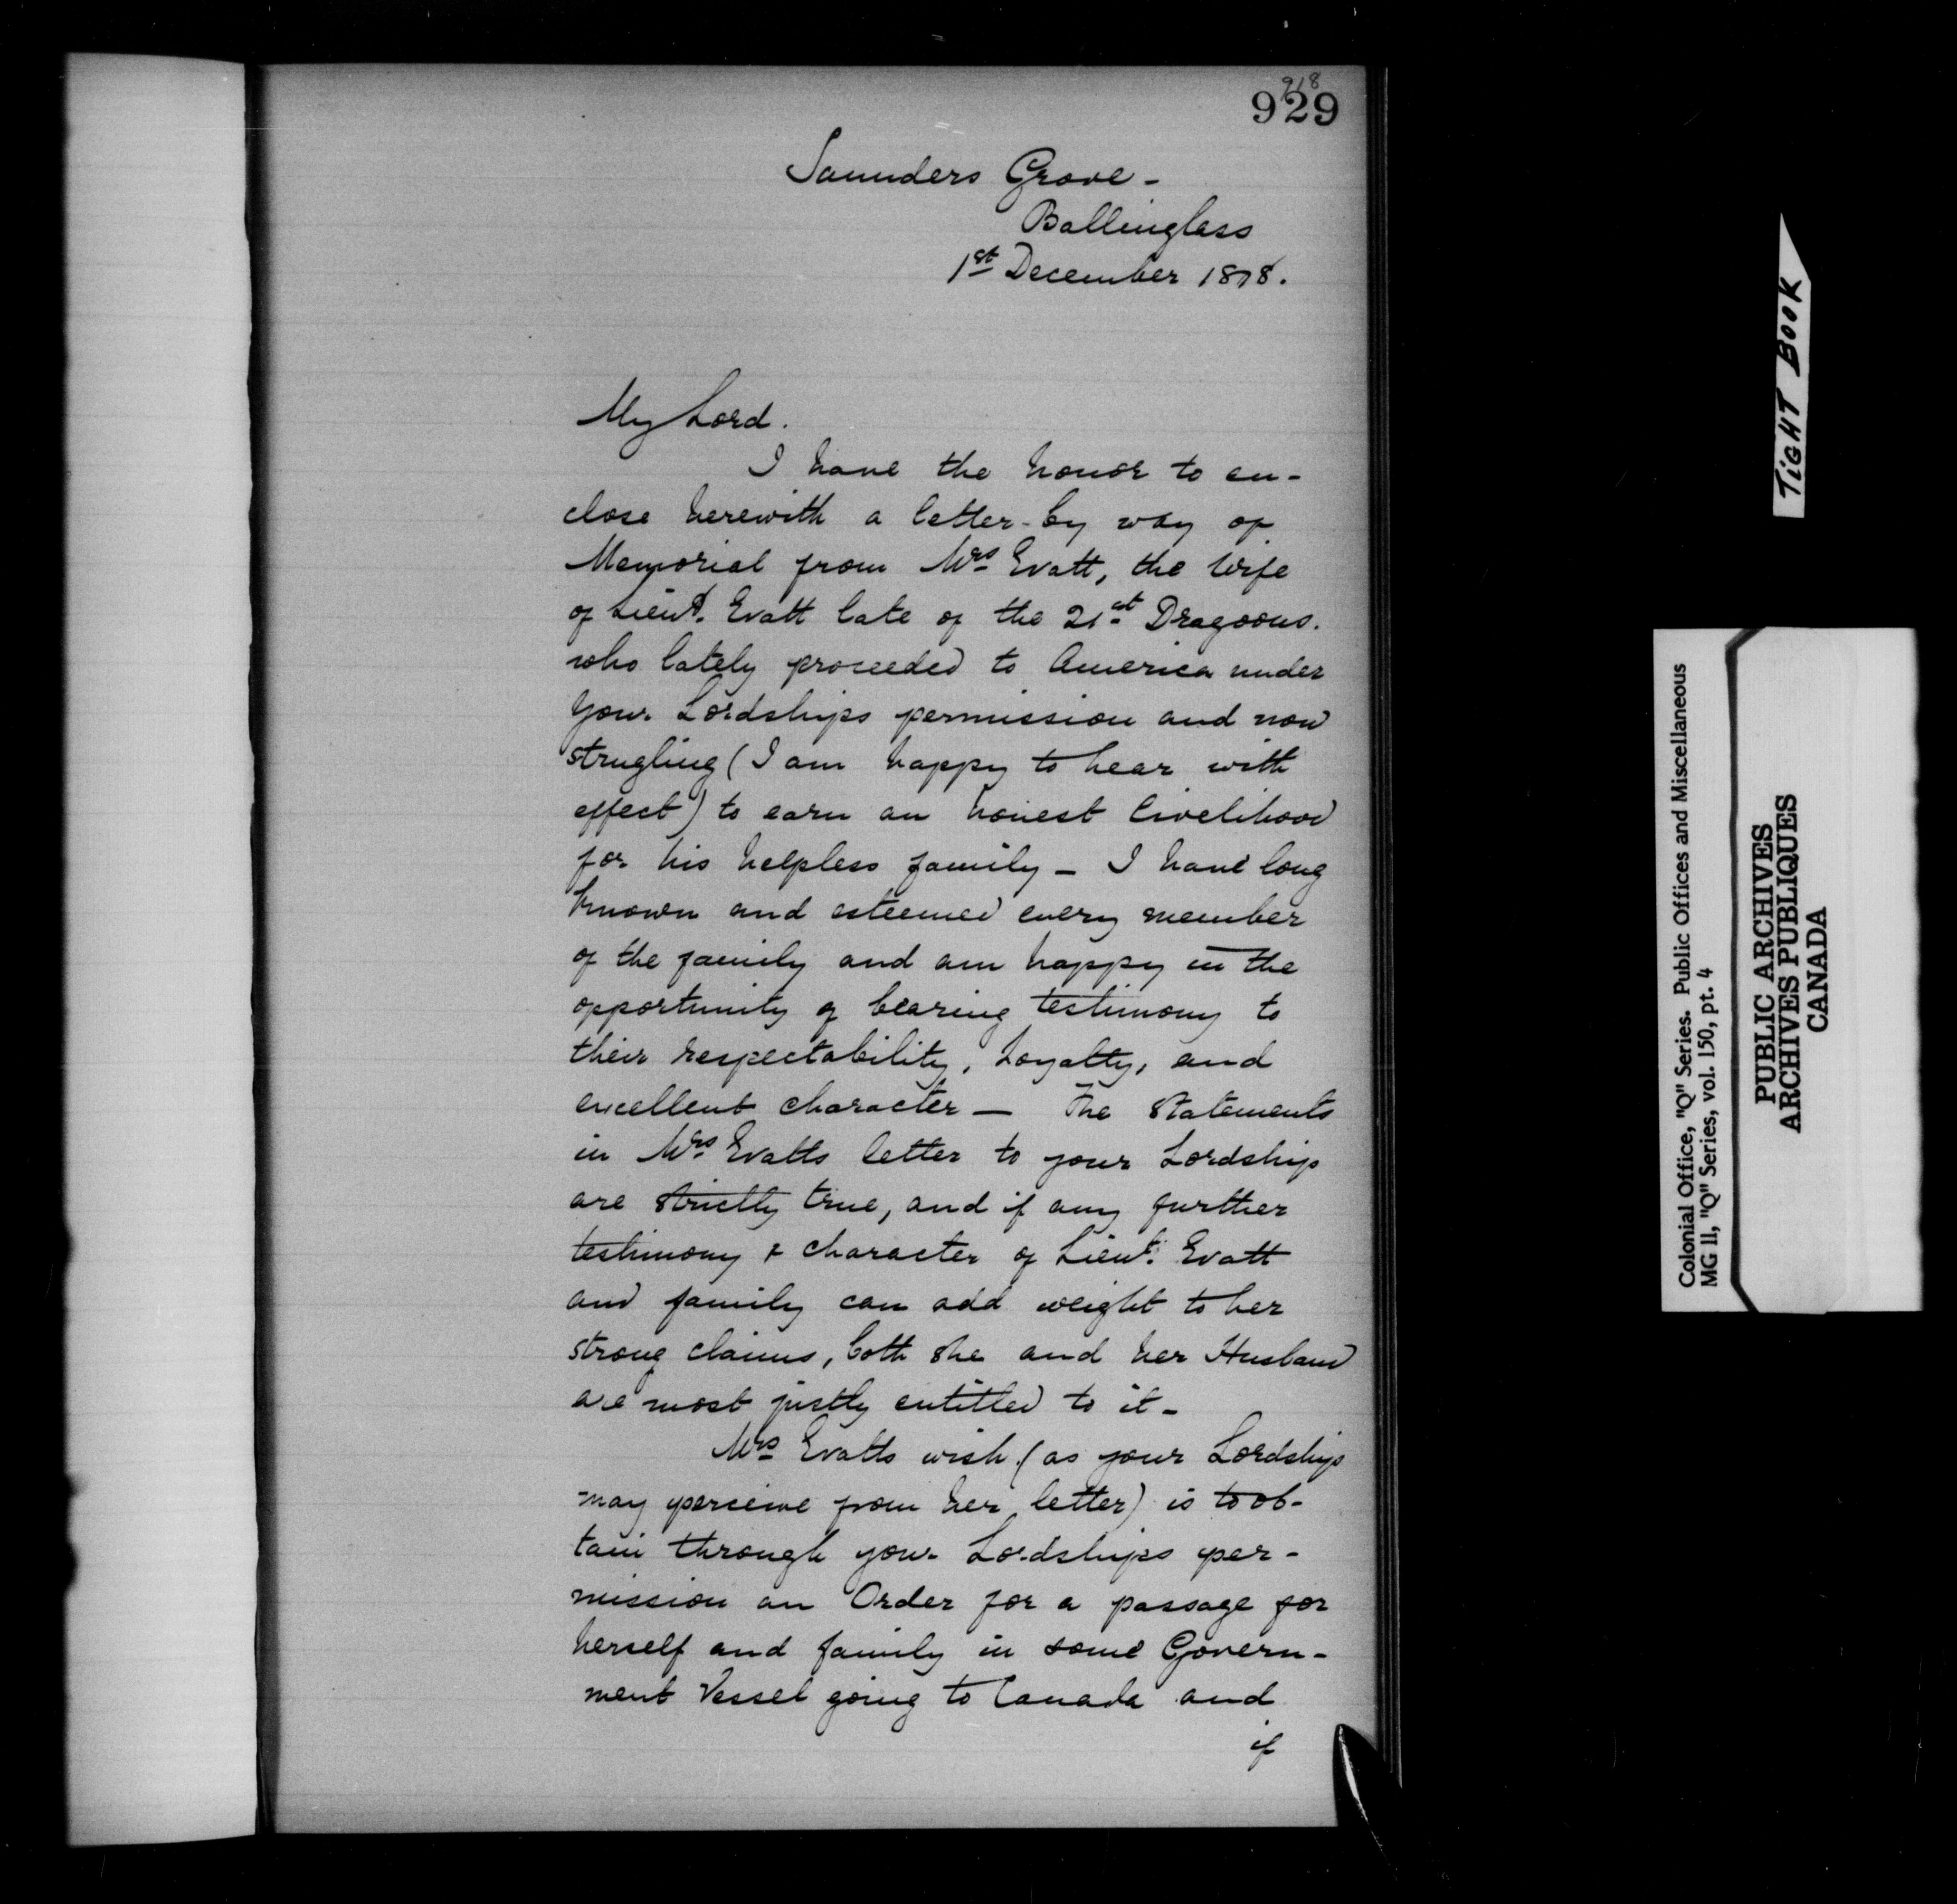 918
929
Saunders Grove -
Ballinglass
1st December 1818.
My Lord.
I have the honor to en-
close herewith a letter by way of
Memorial from Mrs Evatt, the Wife
of Lieut. Evatt late of the 21st Dragoons.
who lately proceeded to America under
Your Lordships permission and now
strugling (I am happy to hear with
effect) to earn an honest livelihood
for his helpless family - I have long
known and esteemed every member
of the family and am happy in the
opportunity of bearing testimony to
their respectability, Loyalty, and
excellent character - The Statements
in Mrs Evatts letter to your Lordship
are strictly true, and if any further
testimony & character of Lieut. Evatt
and family can add weight to her
strong claims, both she and her Husband
are most justly entitled to it -
Mrs Evatts wish (as your Lordship
may perceive from her letter) is to ob-
tain through your Lordships per-
mission an Order for a passage for
herself and family in some Govern-
ment Vessel going to Canada and
if
TIGHT BOOK
Colonial Office, "Q" Series. Public Offices and Miscellaneous
MG 11, "Q" Series, vol. 150, pt. 4
PUBLIC ARCHIVES
ARCHIVES PUBLIQUES
CANADA